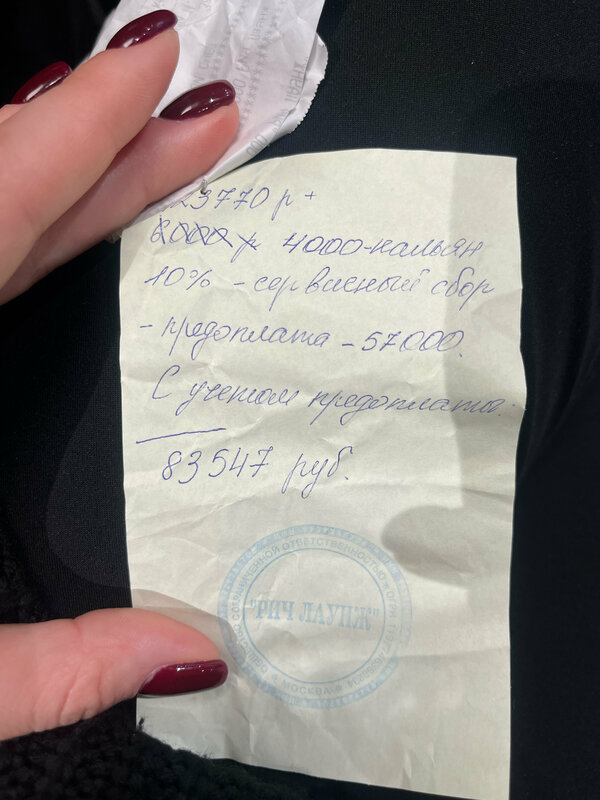 123770 р +
6000 р 4000-кальян
10% - сервисный сбор
- предоплата - 57000.
С учетом предоплаты:
83547 руб.
ОБЩЕСТВО С ОГРАНИЧЕННОЙ ОТВЕТСТВЕННОСТЬЮ
ОГРН
"РИЧ ЛАУНЖ"
* МОСКВА *